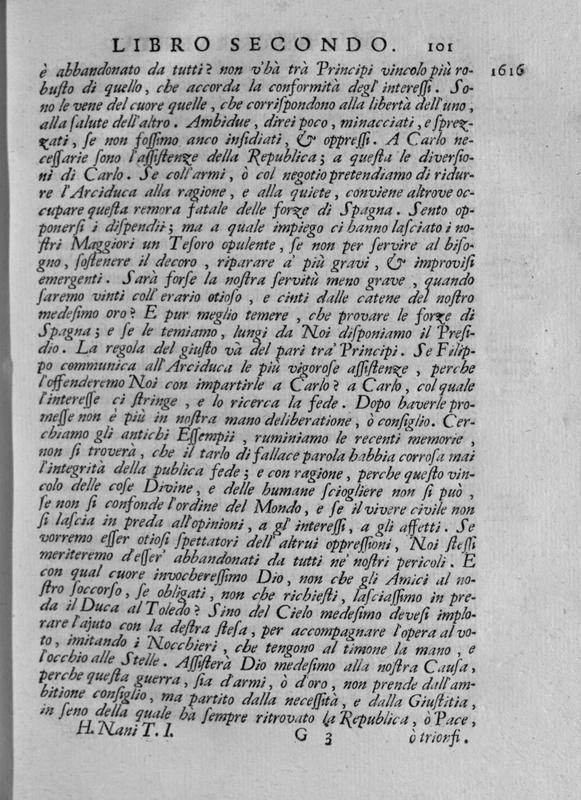 LIBRO SECONDO. 101
è abbandonato da tutti? non v'hà trà Principi vincolo più ro- 1616
busto di quello, che accorda la conformità degl'interessi. So-
no le vene del cuore quelle, che corrispondono alla libertà dell'uno,
alla salute dell'altro. Ambidue, direi poco, minacciati, e sprez-
zati, se non fossimo anco insidiati, & oppressi. A Carlo ne-
cessarie sono l'assistenze della Republica; a questa le diversio-
ni di Carlo. Se coll'armi, ò col negotio pretendiamo di ridur-
re l'Arciduca alla ragione, e alla quiete, conviene altrove oc-
cupare questa remora fatale delle forze di Spagna. Sento op-
ponersi i dispendii; ma a quale impiego ci hanno lasciato i no-
stri Maggiori un Tesoro opulente, se non per servire al biso-
gno, sostenere il decoro, riparare a' più gravi, & improvisi
emergenti. Sarà forse la nostra servitù meno grave, quando
saremo vinti coll'erario otioso, e cinti dalle catene del nostro
medesimo oro? E pur meglio temere, che provare le forze di
Spagna; e se le temiamo, lungi da Noi disponiamo il Presi-
dio. La regola del giusto và del pari trà Principi. Se Filip-
po communica all'Arciduca le più vigorose assistenze, perche
l'offenderemo Noi con impartirle a Carlo? a Carlo, col quale
l'interesse ci stringe, e lo ricerca la fede. Dopo haverle pro-
messe non è più in nostra mano deliberatione, ò consiglio. Cer-
chiamo gli antichi Essempii, ruminiamo le recenti memorie,
non si troverà, che il tarlo di fallace parola habbia corrosa mai
l'integrità della publica fede; e con ragione, perche questo vin-
colo delle cose Divine, e delle humane sciogliere non si può,
se non si confonde l'ordine del Mondo, e se il vivere civile non
si lascia in preda all'opinioni, a gl'interessi, a gli affetti. Se
vorremo esser otiosi spettatori dell'altrui oppressioni, Noi stessi
meriteremo d'esser' abbandonati da tutti ne' nostri pericoli. E
con qual cuore invocheressimo Dio, non che gli Amici al no-
stro soccorso, se obligati, non che richiesti, lasciassimo in pre-
da il Duca al Toledo? Sino del Cielo medesimo devesi implo-
rare l'ajuto con la destra stesa, per accompagnare l'opera al vo-
to, imitando i Nocchieri, che tengono al timone la mano, e
l'occhio alle Stelle. Assisterà Dio medesimo alla nostra Causa,
perche questa guerra, sia d'armi, ò d'oro, non prende dall'am-
bitione consiglio, ma partito dalla necessità, e dalla Giustitia,
in seno della quale hà sempre ritrovato la Republica, ò Pace,
H. Nani T. I. G 3 ò trionfi.